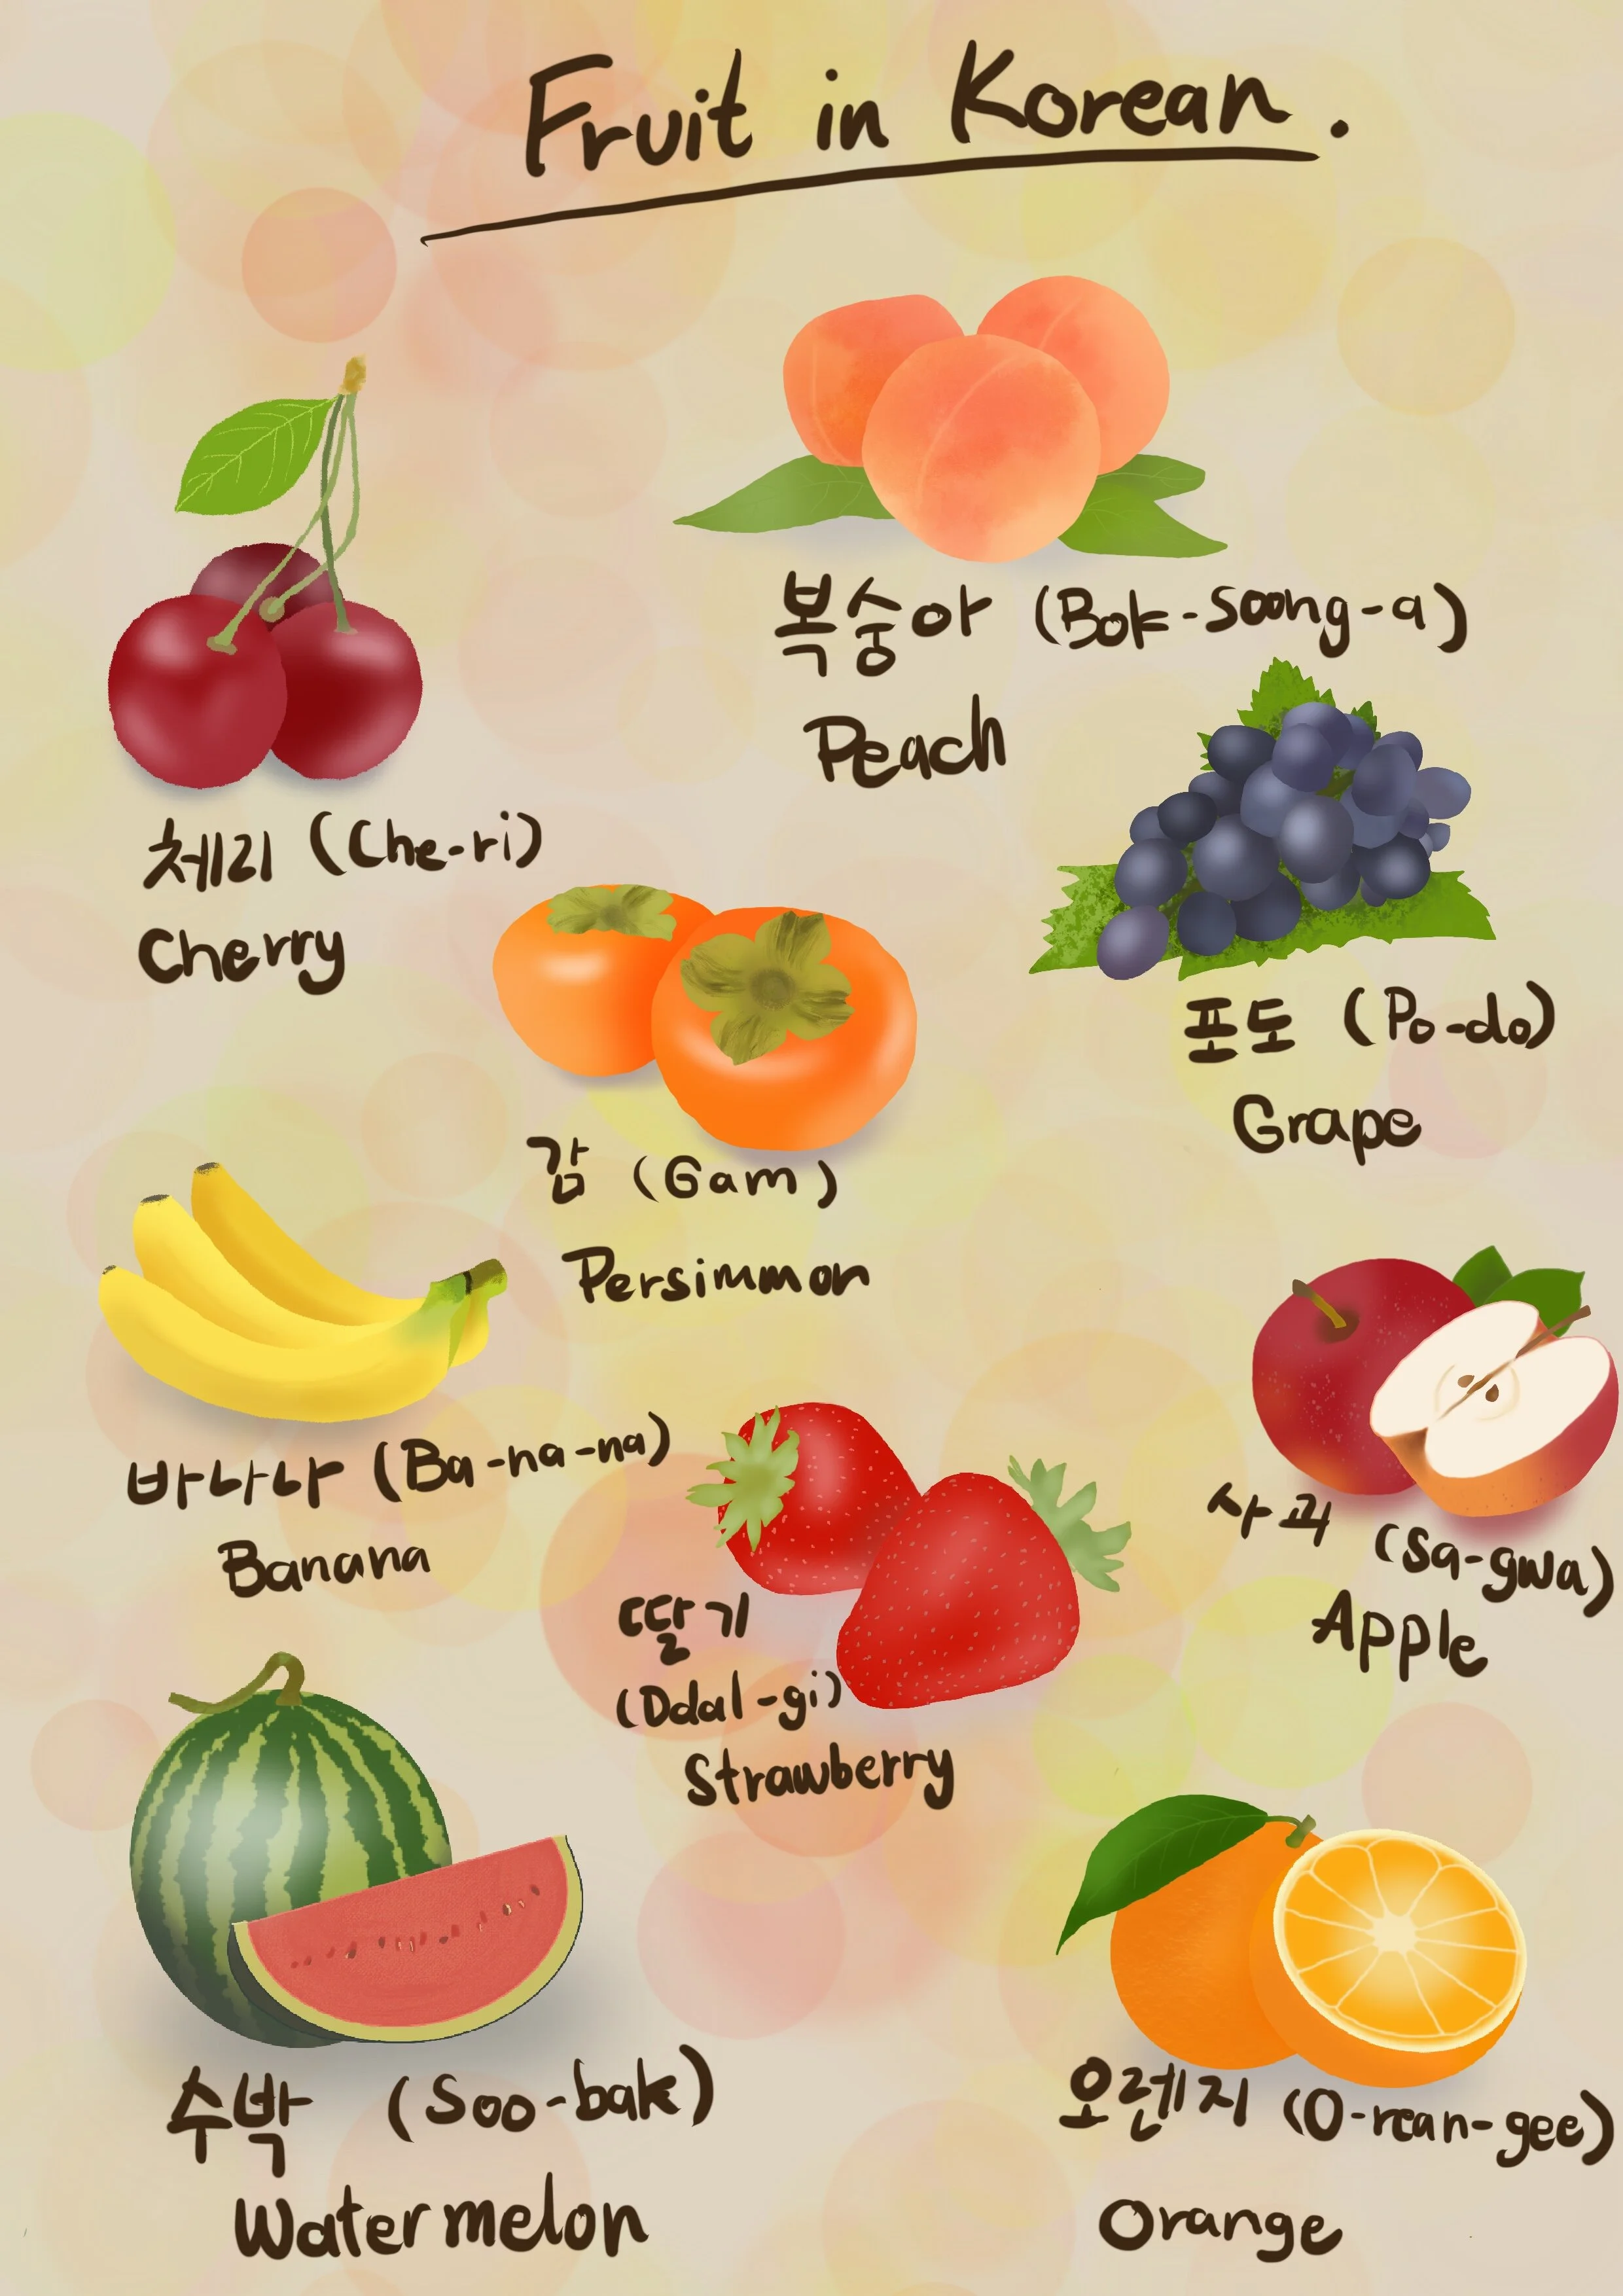 Fruit in Korean.
복숭아 (Bok-soong-a)
Peach
체리 (Che-ri)
Cherry
포도 (Po-do)
Grape
감 (Gam)
Persimmon
바나나 (Ba-na-na)
Banana
사과 (Sa-gwa)
Apple
딸기
(Ddal-gi)
Strawberry
수박 (Soo-bak)
Watermelon
오렌지 (O-rean-gee)
Orange